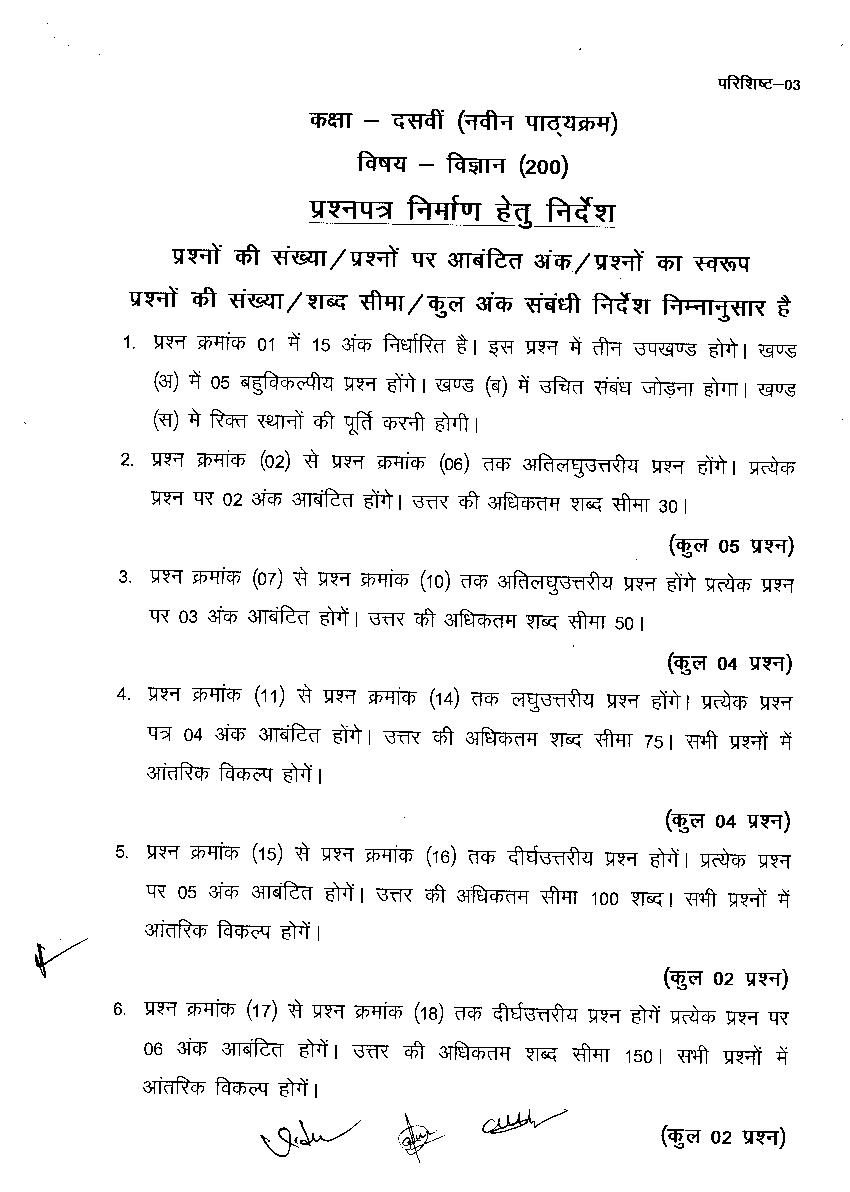 परिशिष्ट–03
कक्षा – दसवीं (नवीन पाठ्यक्रम)
विषय – विज्ञान (200)
प्रश्नपत्र निर्माण हेतु निर्देश
प्रश्नों की संख्या/प्रश्नों पर आबंटित अंक/प्रश्नों का स्वरूप
प्रश्नों की संख्या/शब्द सीमा/कुल अंक संबंधी निर्देश निम्नानुसार है
1. प्रश्न क्रमांक 01 में 15 अंक निर्धारित है। इस प्रश्न में तीन उपखण्ड होगे। खण्ड
(अ) में 05 बहुविकल्पीय प्रश्न होंगे। खण्ड (ब) में उचित संबंध जोड़ना होगा। खण्ड
(स) मे रिक्त स्थानों की पूर्ति करनी होगी।
2. प्रश्न क्रमांक (02) से प्रश्न क्रमांक (06) तक अतिलघुउत्तरीय प्रश्न होंगे। प्रत्येक
प्रश्न पर 02 अंक आबंटित होंगे। उत्तर की अधिकतम शब्द सीमा 30।
(कुल 05 प्रश्न)
3. प्रश्न क्रमांक (07) से प्रश्न क्रमांक (10) तक अतिलघुउत्तरीय प्रश्न होंगे प्रत्येक प्रश्न
पर 03 अंक आबंटित होगें। उत्तर की अधिकतम शब्द सीमा 50।
(कुल 04 प्रश्न)
4. प्रश्न क्रमांक (11) से प्रश्न क्रमांक (14) तक लघुउत्तरीय प्रश्न होंगे। प्रत्येक प्रश्न
पत्र 04 अंक आबंटित होंगे। उत्तर की अधिकतम शब्द सीमा 75। सभी प्रश्नों में
आंतरिक विकल्प होगें।
(कुल 04 प्रश्न)
5. प्रश्न क्रमांक (15) से प्रश्न क्रमांक (16) तक दीर्घउत्तरीय प्रश्न होगें। प्रत्येक प्रश्न
पर 05 अंक आबंटित होगें। उत्तर की अधिकतम सीमा 100 शब्द। सभी प्रश्नों में
आंतरिक विकल्प होगें।
(कुल 02 प्रश्न)
6. प्रश्न क्रमांक (17) से प्रश्न क्रमांक (18) तक दीर्घउत्तरीय प्रश्न होगें प्रत्येक प्रश्न पर
06 अंक आबंटित होगें। उत्तर की अधिकतम शब्द सीमा 150। सभी प्रश्नों में
आंतरिक विकल्प होगें।
(कुल 02 प्रश्न)